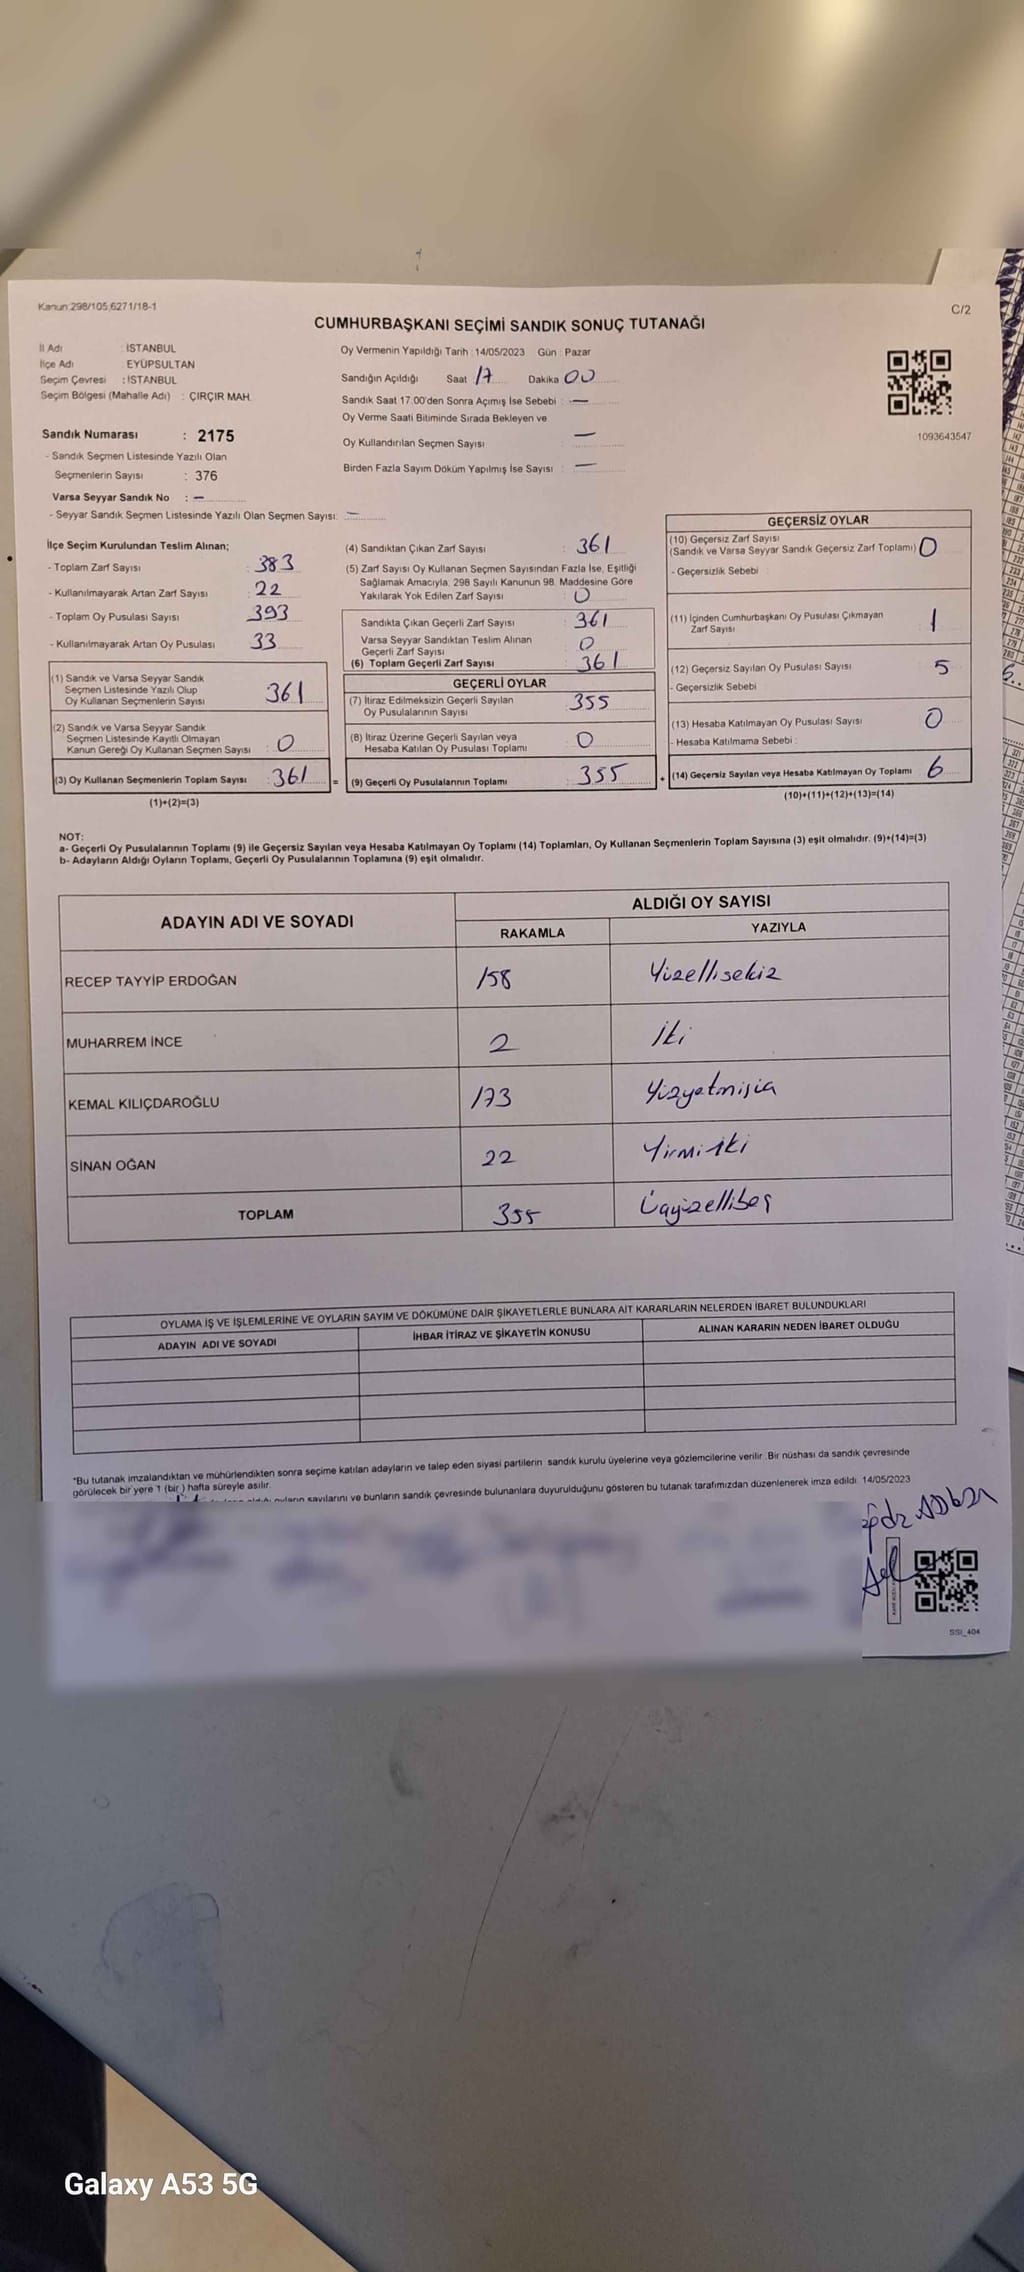 Kanun:298/105,6271/18-1
C/2
CUMHURBAŞKANI SEÇİMİ SANDIK SONUÇ TUTANAĞI
İl Adı : İSTANBUL
İlçe Adı : EYÜPSULTAN
Seçim Çevresi : İSTANBUL
Seçim Bölgesi (Mahalle Adı) : ÇIRÇIR MAH.
Sandık Numarası : 2175
- Sandık Seçmen Listesinde Yazılı Olan
Seçmenlerin Sayısı : 376
Varsa Seyyar Sandık No : –
- Seyyar Sandık Seçmen Listesinde Yazılı Olan Seçmen Sayısı: –
Oy Vermenin Yapıldığı Tarih : 14/05/2023 Gün : Pazar
Sandığın Açıldığı Saat 17 Dakika 00
Sandık Saat 17.00'den Sonra Açımış İse Sebebi : —
Oy Verme Saati Bitiminde Sırada Bekleyen ve
Oy Kullandırılan Seçmen Sayısı : —
Birden Fazla Sayım Döküm Yapılmış İse Sayısı : —
1093643547
İlçe Seçim Kurulundan Teslim Alınan;
- Toplam Zarf Sayısı : 383
- Kullanılmayarak Artan Zarf Sayısı : 22
- Toplam Oy Pusulası Sayısı : 393
- Kullanılmayarak Artan Oy Pusulası : 33
(1) Sandık ve Varsa Seyyar Sandık
Seçmen Listesinde Yazılı Olup
Oy Kullanan Seçmenlerin Sayısı : 361
(2) Sandık ve Varsa Seyyar Sandık
Seçmen Listesinde Kayıtlı Olmayan
Kanun Gereği Oy Kullanan Seçmen Sayısı : 0
(3) Oy Kullanan Seçmenlerin Toplam Sayısı : 361 =
(1)+(2)=(3)
(4) Sandıktan Çıkan Zarf Sayısı : 361
(5) Zarf Sayısı Oy Kullanan Seçmen Sayısından Fazla İse, Eşitliği
Sağlamak Amacıyla; 298 Sayılı Kanunun 98. Maddesine Göre
Yakılarak Yok Edilen Zarf Sayısı : 0
Sandıkta Çıkan Geçerli Zarf Sayısı : 361
Varsa Seyyar Sandıktan Teslim Alınan
Geçerli Zarf Sayısı : 0
(6) Toplam Geçerli Zarf Sayısı : 361
GEÇERLİ OYLAR
(7) İtiraz Edilmeksizin Geçerli Sayılan
Oy Pusulalarının Sayısı : 355
(8) İtiraz Üzerine Geçerli Sayılan veya
Hesaba Katılan Oy Pusulası Toplamı : 0
(9) Geçerli Oy Pusulalarının Toplamı : 355 +
GEÇERSİZ OYLAR
(10) Geçersiz Zarf Sayısı
(Sandık ve Varsa Seyyar Sandık Geçersiz Zarf Toplamı) 0
- Geçersizlik Sebebi :
(11) İçinden Cumhurbaşkanı Oy Pusulası Çıkmayan
Zarf Sayısı : 1
(12) Geçersiz Sayılan Oy Pusulası Sayısı : 5
- Geçersizlik Sebebi :
(13) Hesaba Katılmayan Oy Pusulası Sayısı : 0
- Hesaba Katılmama Sebebi :
(14) Geçersiz Sayılan veya Hesaba Katılmayan Oy Toplamı : 6
(10)+(11)+(12)+(13)=(14)
NOT:
a- Geçerli Oy Pusulalarının Toplamı (9) ile Geçersiz Sayılan veya Hesaba Katılmayan Oy Toplamı (14) Toplamları, Oy Kullanan Seçmenlerin Toplam Sayısına (3) eşit olmalıdır. (9)+(14)=(3)
b- Adayların Aldığı Oyların Toplamı, Geçerli Oy Pusulalarının Toplamına (9) eşit olmalıdır.
ADAYIN ADI VE SOYADI ALDIĞI OY SAYISI
RAKAMLA YAZIYLA
RECEP TAYYİP ERDOĞAN 158 Yüzellisekiz
MUHARREM İNCE 2 İki
KEMAL KILIÇDAROĞLU 173
SİNAN OĞAN 22 Yirmi iki
TOPLAM 355 Üçyüzellibeş
OYLAMA İŞ VE İŞLEMLERİNE VE OYLARIN SAYIM VE DÖKÜMÜNE DAİR ŞİKAYETLERLE BUNLARA AİT KARARLARIN NELERDEN İBARET BULUNDUKLARI
ADAYIN ADI VE SOYADI İHBAR İTİRAZ VE ŞİKAYETİN KONUSU ALINAN KARARIN NEDEN İBARET OLDUĞU
"Bu tutanak imzalandıktan ve mühürlendikten sonra seçime katılan adayların ve talep eden siyasi partilerin sandık kurulu üyelerine veya gözlemcilerine verilir. Bir nüshası da sandık çevresinde
görülecek bir yere 1 (bir) hafta süreyle asılır.
oyların sayılarını ve bunların sandık çevresinde bulunanlara duyurulduğunu gösteren bu tutanak tarafımızdan düzenlenerek imza edildi. 14/05/2023
SSI_404
Galaxy A53 5G